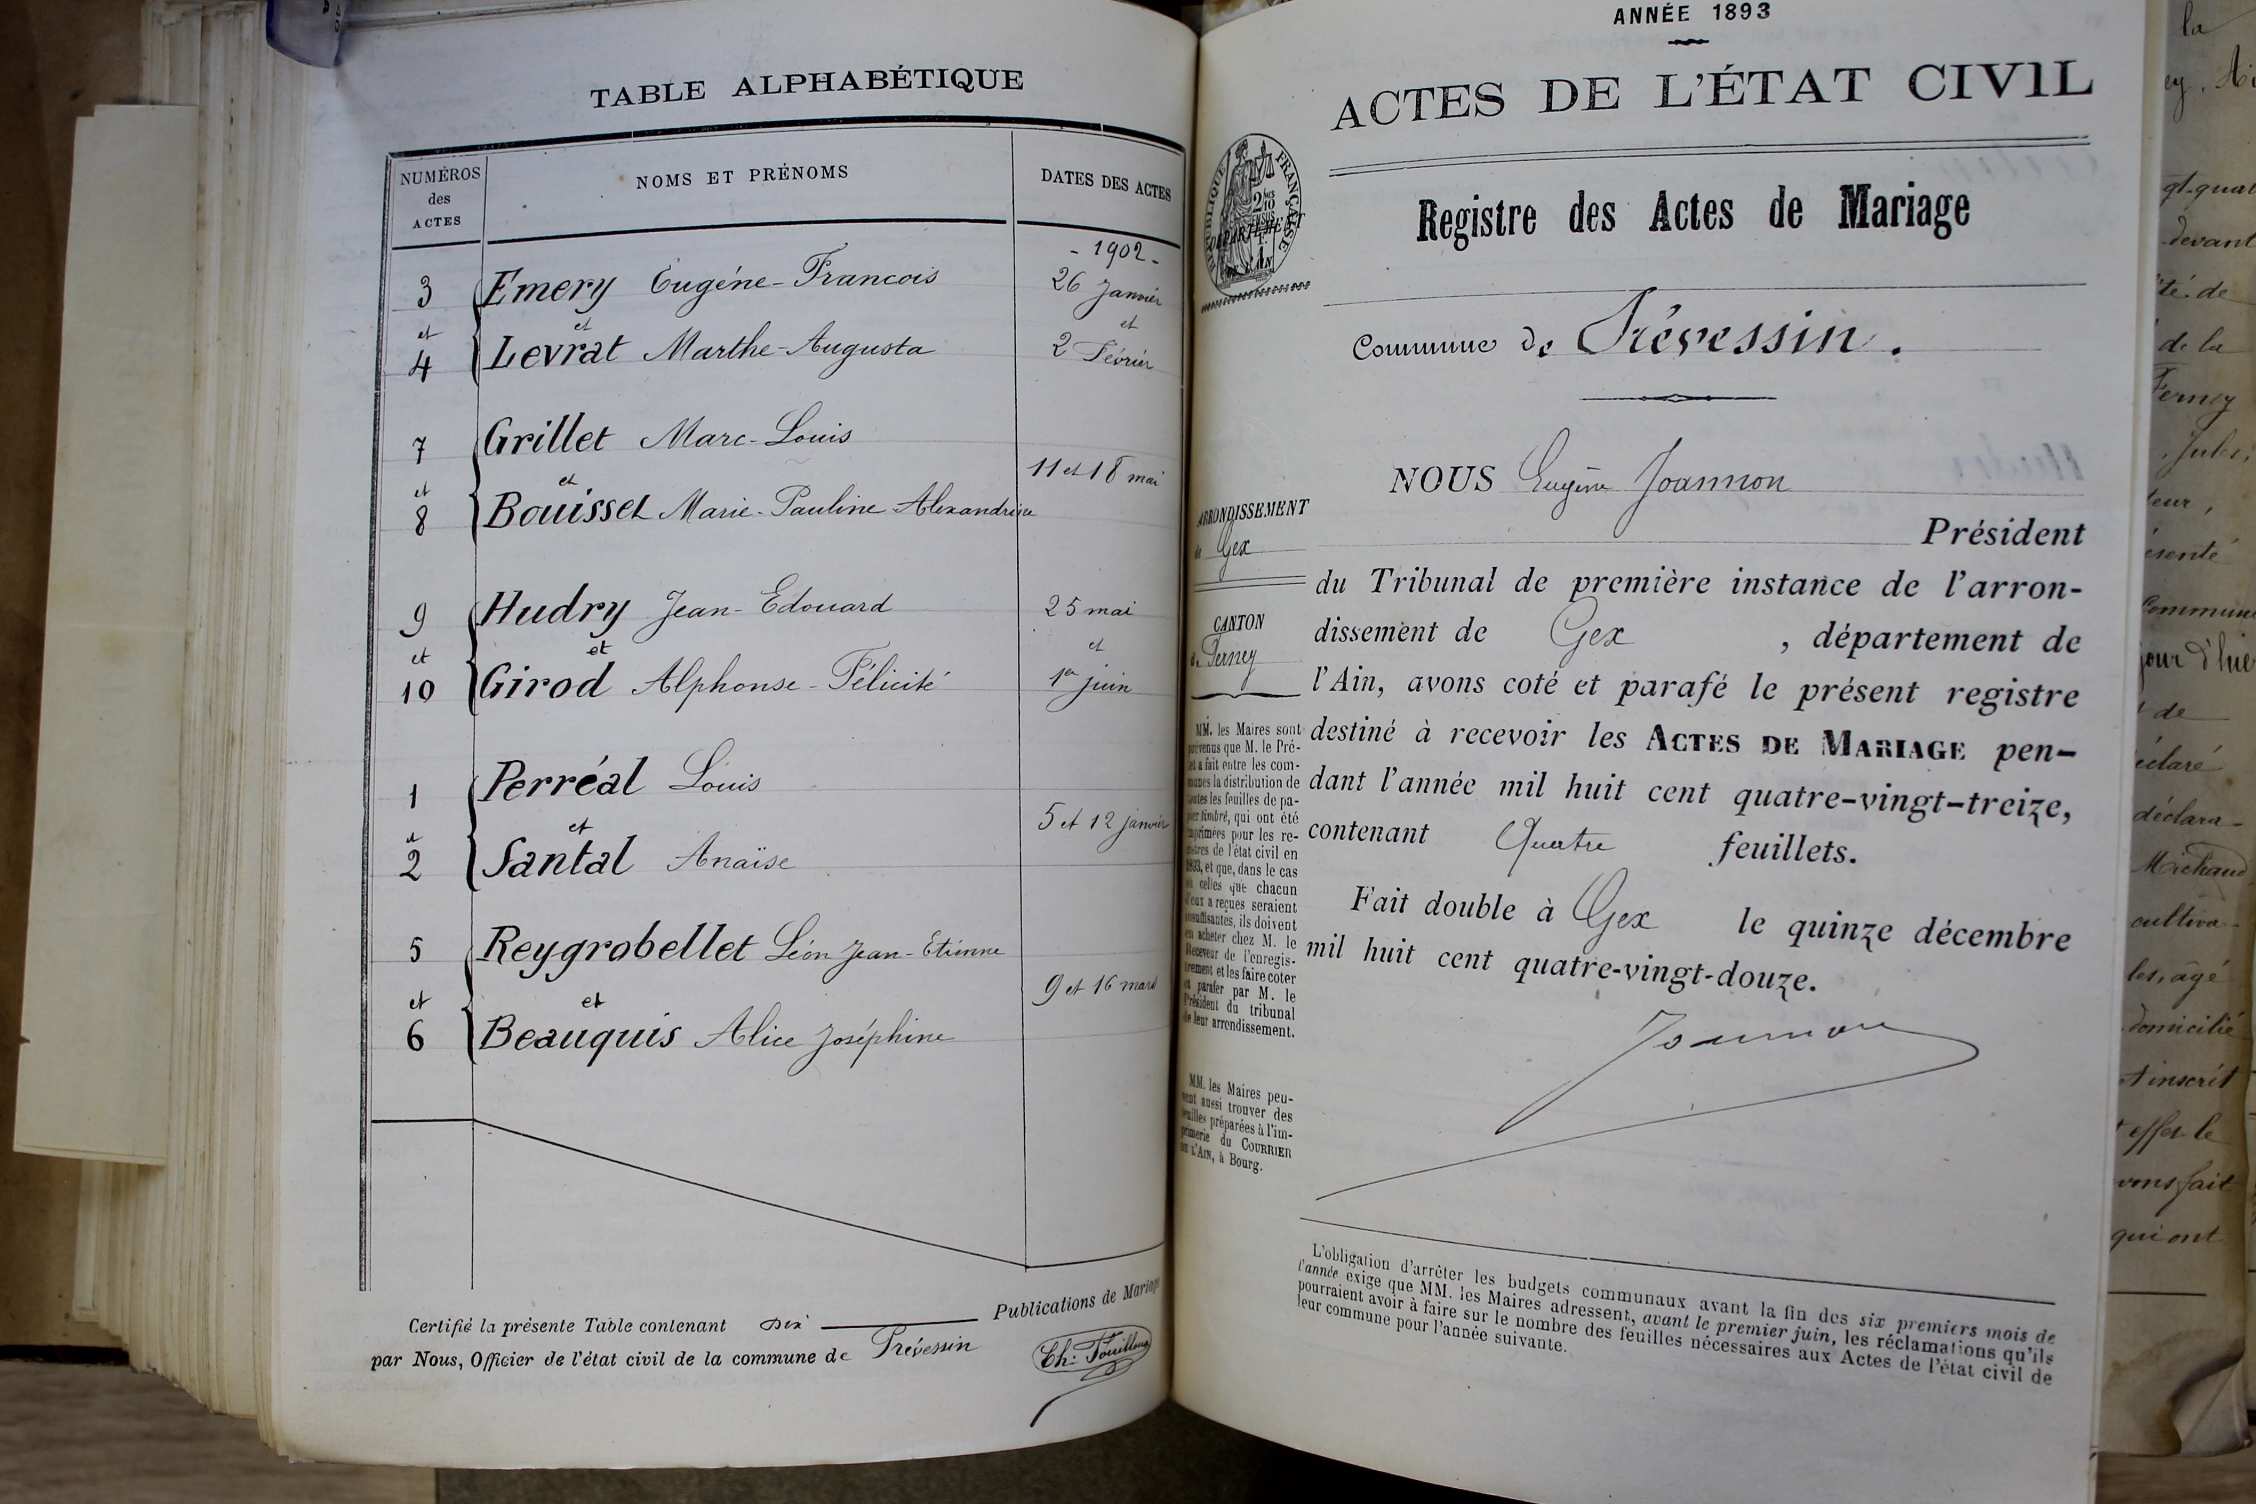 TABLE ALPHABÉTIQUE
NUMÉROS
des
ACTES
NOMS ET PRÉNOMS
DATES DES ACTES
- 1902 -
3 Emery Eugéne-Francois 26 Janvier
et et et
4 Levrat Marthe-Augusta 2 Février
7 Grillet Marc-Louis
11 et 18 mai
et et
8 Bouisset Marie-Pauline-Alexandrine
9 Hudry Jean-Edouard 25 mai
et et et
10 Girod Alphonse-Félicité 1er juin
1 Perréal Louis
5 et 12 janvier
et et
2 Santal Anaïse
5 Reygrobellet Léon Jean-Etienne
9 et 16 mars
et et
6 Beauquis Alice Joséphine
Certifié la présente Table contenant dix Publications de Mariage
par Nous, Officier de l'état civil de la commune de Prévessin
Ch: Fouilloux
ANNÉE 1893
ACTES DE L'ÉTAT CIVIL
RÉPUBLIQUE FRANÇAISE
DÉPARTEMENT
DE L'AIN
Registre des Actes de Mariage
Commune de Prévessin.
NOUS Eugène Joannon
Président
du Tribunal de première instance de l'arron-
dissement de Gex , département de
l'Ain, avons coté et parafé le présent registre
destiné à recevoir les ACTES DE MARIAGE pen-
dant l'année mil huit cent quatre-vingt-treize,
contenant Quatre feuillets.
Fait double à Gex le quinze décembre
mil huit cent quatre-vingt-douze.
Joannon
ARRONDISSEMENT
de Gex
CANTON
de Ferney
MM. les Maires sont
prévenus que M. le Pré-
fet a fait entre les com-
munes la distribution de
toutes les feuilles de pa-
pier timbré, qui ont été
imprimées pour les re-
gistres de l'état civil en
1893, et que, dans le cas
où celles que chacun
d'eux a reçues seraient
insuffisantes, ils doivent
en acheter chez M. le
Receveur de l'enregis-
trement et les faire coter
et parafer par M. le
Président du tribunal
de leur arrondissement.
MM. les Maires peu-
vent aussi trouver des
feuilles préparées à l'im-
primerie du COURRIER
DE L'AIN, à Bourg.
L'obligation d'arrêter les budgets communaux avant la fin des six premiers mois de
l'année exige que MM. les Maires adressent, avant le premier juin, les réclamations qu'ils
pourraient avoir à faire sur le nombre des feuilles nécessaires aux Actes de l'état civil de
leur commune pour l'année suivante.
la
devant
de
de la
Ferney
Jules,
Commune
jour d'hier
de
déclaré
déclara-
Michaud
cultiva-
âgé
domicilié
inscrit
effet le
fait
qui ont